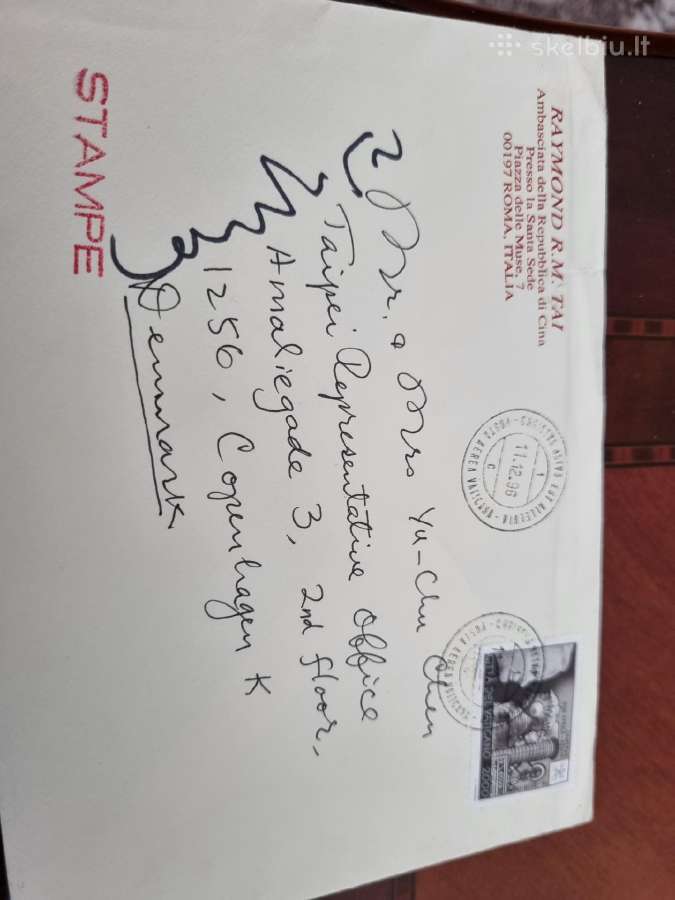 skelbiu.lt
RAYMOND R.M. TAI
Ambasciata della Repubblica di Cina
Presso la Santa Sede
Piazza delle Muse, 7
00197 ROMA, ITALIA
11.12.96
POSTA AEREA
Mr. & Mrs Yu-Chu Chen
Taipei Representative Office
Amaliegade 3, 2nd floor,
1256, Copenhagen K
Denmark
STAMPE